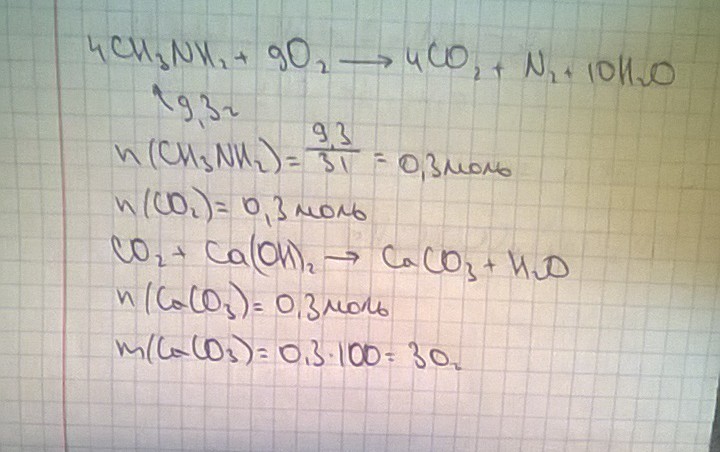 4CH₃NH₂ + 9O₂ → 4CO₂ + N₂ + 10H₂O
↑9,3г
n(CH₃NH₂) = 9,3/31 = 0,3 моль
n(CO₂) = 0,3 моль
CO₂ + Ca(OH)₂ → CaCO₃ + H₂O
n(CaCO₃) = 0,3 моль
m(CaCO₃) = 0,3·100 = 30г